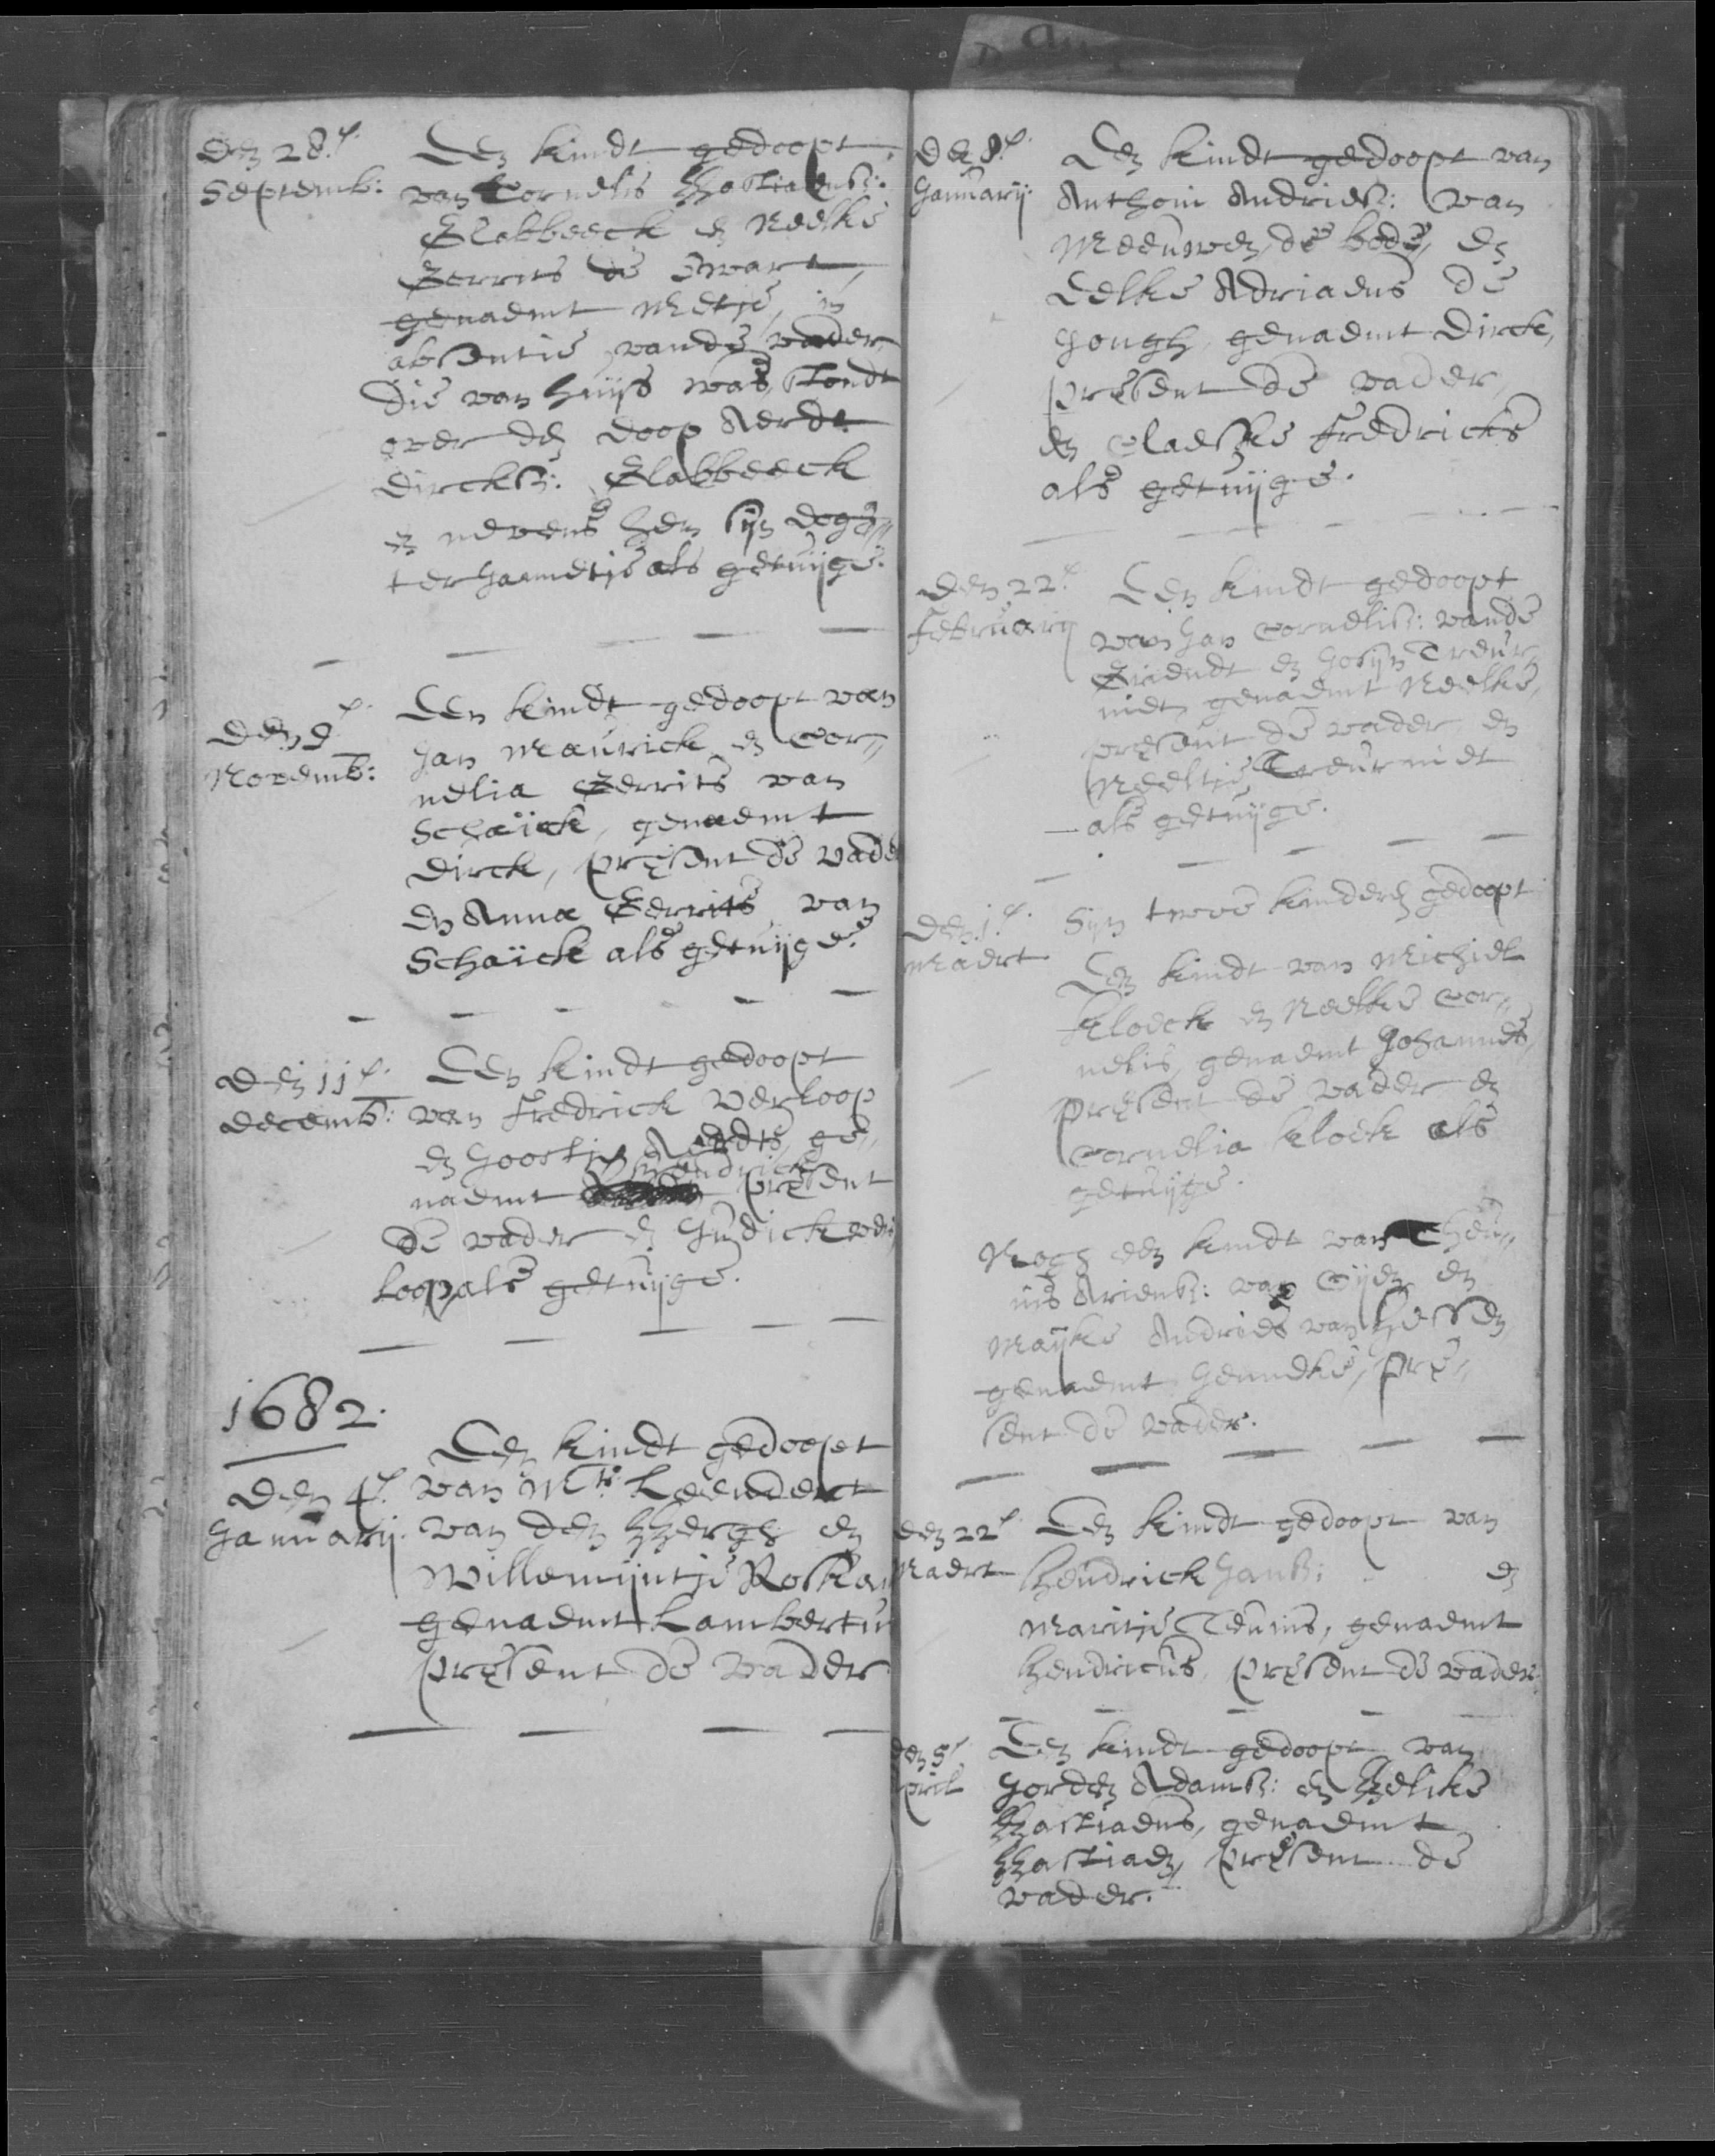 Den 28.e
Septemb:
Een kindt gedoopt
van Cornelis Bastiaensz:
Slabbeeck en Neelke
Gerrits de Swart,
genaemt Metje, in
absentie vande vader,
die van huijs was, stondt
over den doop Aerdt
Dircksz: Slabbeeck
en nevens hem sijn dogh„
ter Jannetje als getuijge.
Den 9.e
Novemb:
Een kindt gedoopt van
Jan Maurick en Cor„
nelia Gerrits van
Schaick, genaemt
Dirck, present de vader
en Anna Gerrits van
Schaick als getuijge.
Den 11.e
Decemb:
Een kindt gedoopt
van Fredrick Verloop
en Joostje Aerdts, ge„
Hendrick
naemt present
de vader en
loop als getuijge.
1682.
Den 4.e
Januarij.
Een kindt gedoopt
van Mr. Leendert
van den Bergh en
Willemijntje Roskam
genaemt Lambertus
present de vader
Den 8.e
Januarij:
Een kindt gedoopt van
Anthoni Andriesz: van
Meeuwen, de bode, en
Eelke Adriaens de
Jongh, genaemt Dirck,
present de vader,
en Claeske Fredricks
als getuijge.
Den 22.e
Februarij
Een kindt gedoopt
van Jan Cornelisz: vande
Griendt en Josijn Treur„
niet, genaemt Neelke,
present de vader, en
Neeltje Treurniet
als getuijge.
Den 1.e
Maert
Sijn twee kinderen gedoopt
Een kindt van Michiel
Kloeck en Neelke Cor„
nelis, genaemt Johannes,
present de vader en
Cornelia Kloek als
getuijge.
Noch een kindt van Theu„
nis Ariensz: van en
Maijke Andries van
genaemt Jenneke, pre„
sent de vader.
Den 22.e
Maert
Een kindt gedoopt van
Hendrick Jansz: en
Maritje Teunis, genaemt
Hendricus, present de vader.
Den 5.e
April
Een kindt gedoopt van
Jorden Adamsz: en Belike
Bastiaens, genaemt
Bastiaen, present de
vader.